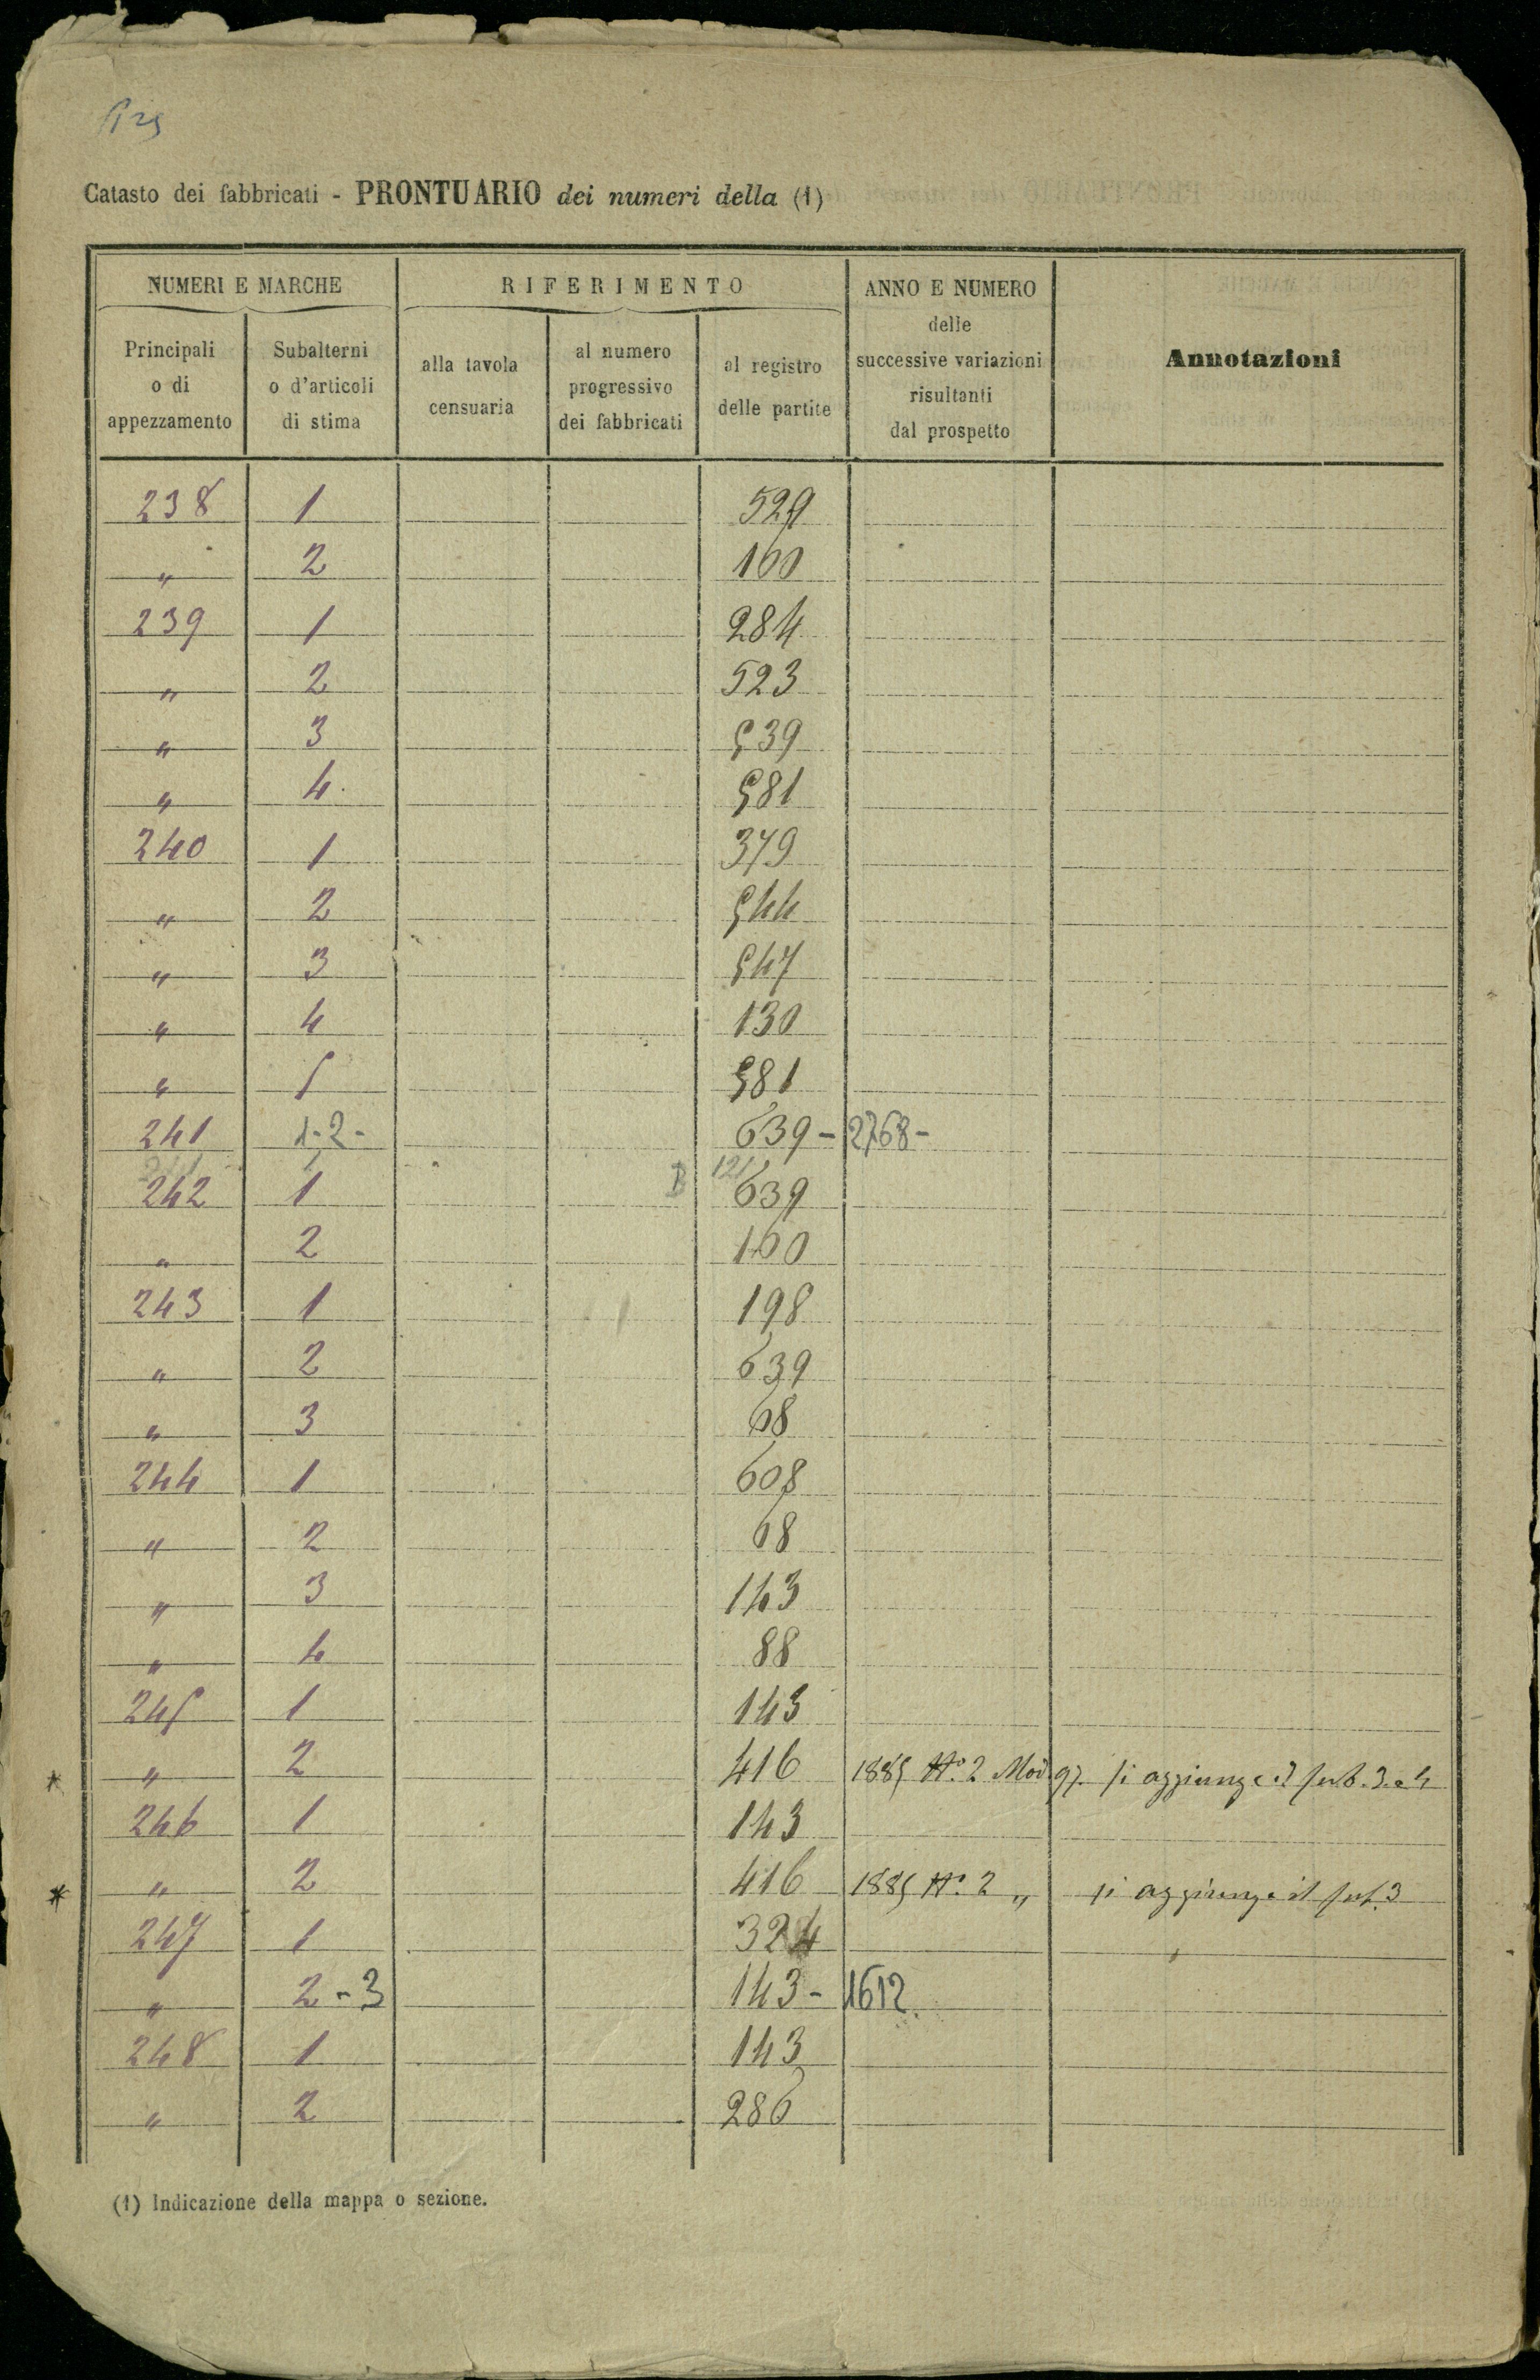 Catasto dei fabbricati - PRONTUARIO dei numeri della (1)
NUMERI E MARCHE
RIFERIMENTO
ANNO E NUMERO
delle
successive variazioni
risultanti
dal prospetto
Annotazioni
Principali
o di
appezzamento
Subalterni
o d'articoli
di stima
alla tavola
censuaria
al numero
progressivo
dei fabbricati
al registro
delle partite
238 1 529
" 2 160
239 1 284
" 2 523
" 3 539
" 4 581
240 1 379
" 2 544
" 3 547
" 4 130
" 5 581
241 1-2- 639- 2768-
121
242 1 639
" 2 160
243 1 198
" 2 639
" 3 68
244 1 608
" 2 68
" 3 143
" 4 88
245 1 143
* " 2 416 1885 N.° 2 Mod. 97. si aggiunge il sub. 3 e 4
246 1 143
* " 2 416 1885 N.° 2 " si aggiunge il sub. 3
247 1 324
" 2-3 143- 1612
248 1 143
" 2 286
(1) Indicazione della mappa o sezione.